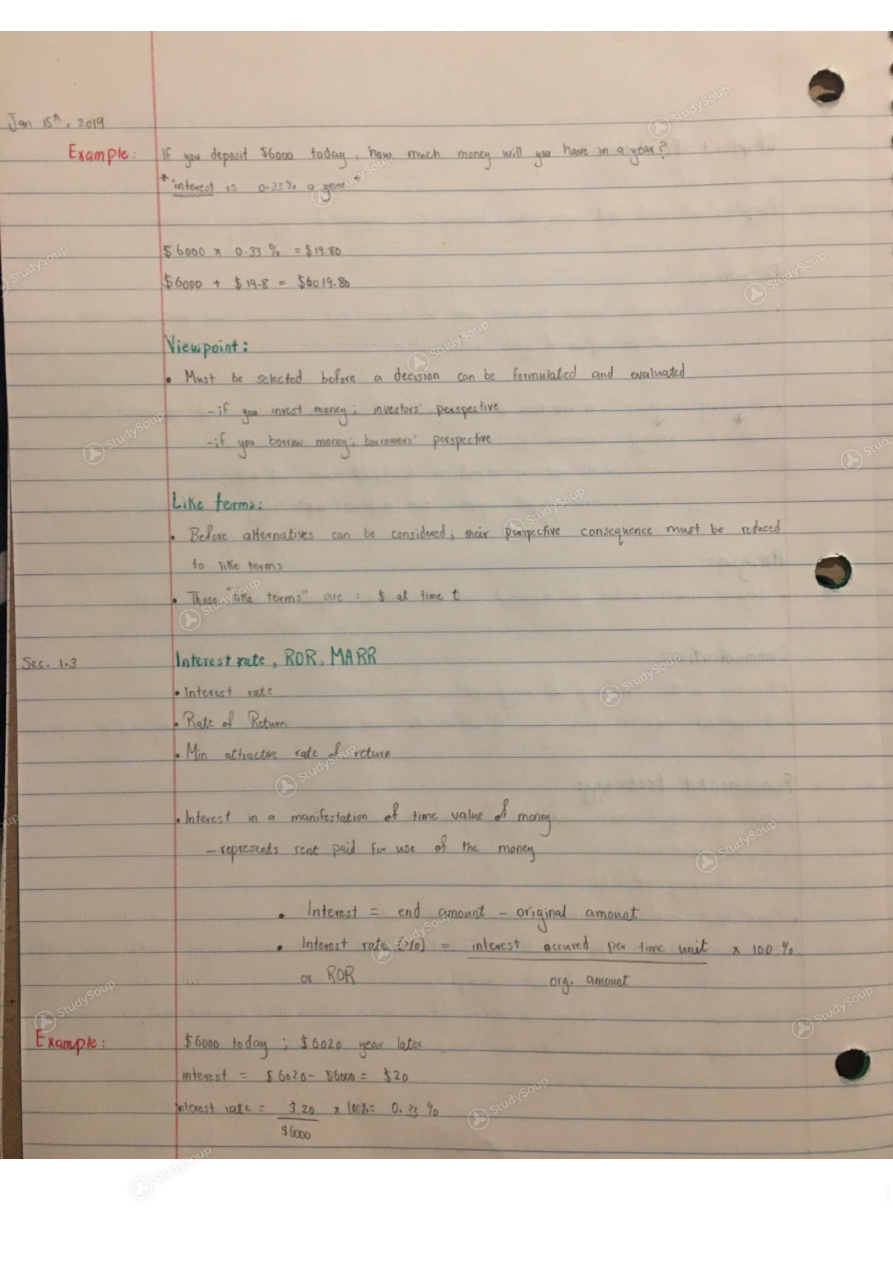 Jan 15th, 2019
Example: If you deposit $6000 today, how much money will you have in a year?
* interest is 0.33% a year *
$6000 x 0.33 % = $19.80
$6000 + $19.8 = $6019.80
Viewpoint:
• Must be selected before a decision can be formulated and evaluated
- if you invest money; investors' perspective
- if you borrow money; borrowers' perspective
Like terms:
• Before alternatives can be considered; their perspective consequence must be reduced
to like terms
• These "like terms" are : $ at time t
Sec. 1.3 Interest rate, ROR, MARR
• Interest rate
• Rate of Return
• Min attractive rate of return
• Interest in a manifestation of time value of money
- represents rent paid for use of the money
• Interest = end amount - original amount
• Interest rate (%) = interest accured per time unit x 100 %
or ROR org. amount
Example: $6000 today ; $6020 year later
interest = $6020 - $6000 = $20
interest rate = $20 x 100% = 0.33 %
$6000
StudySoup